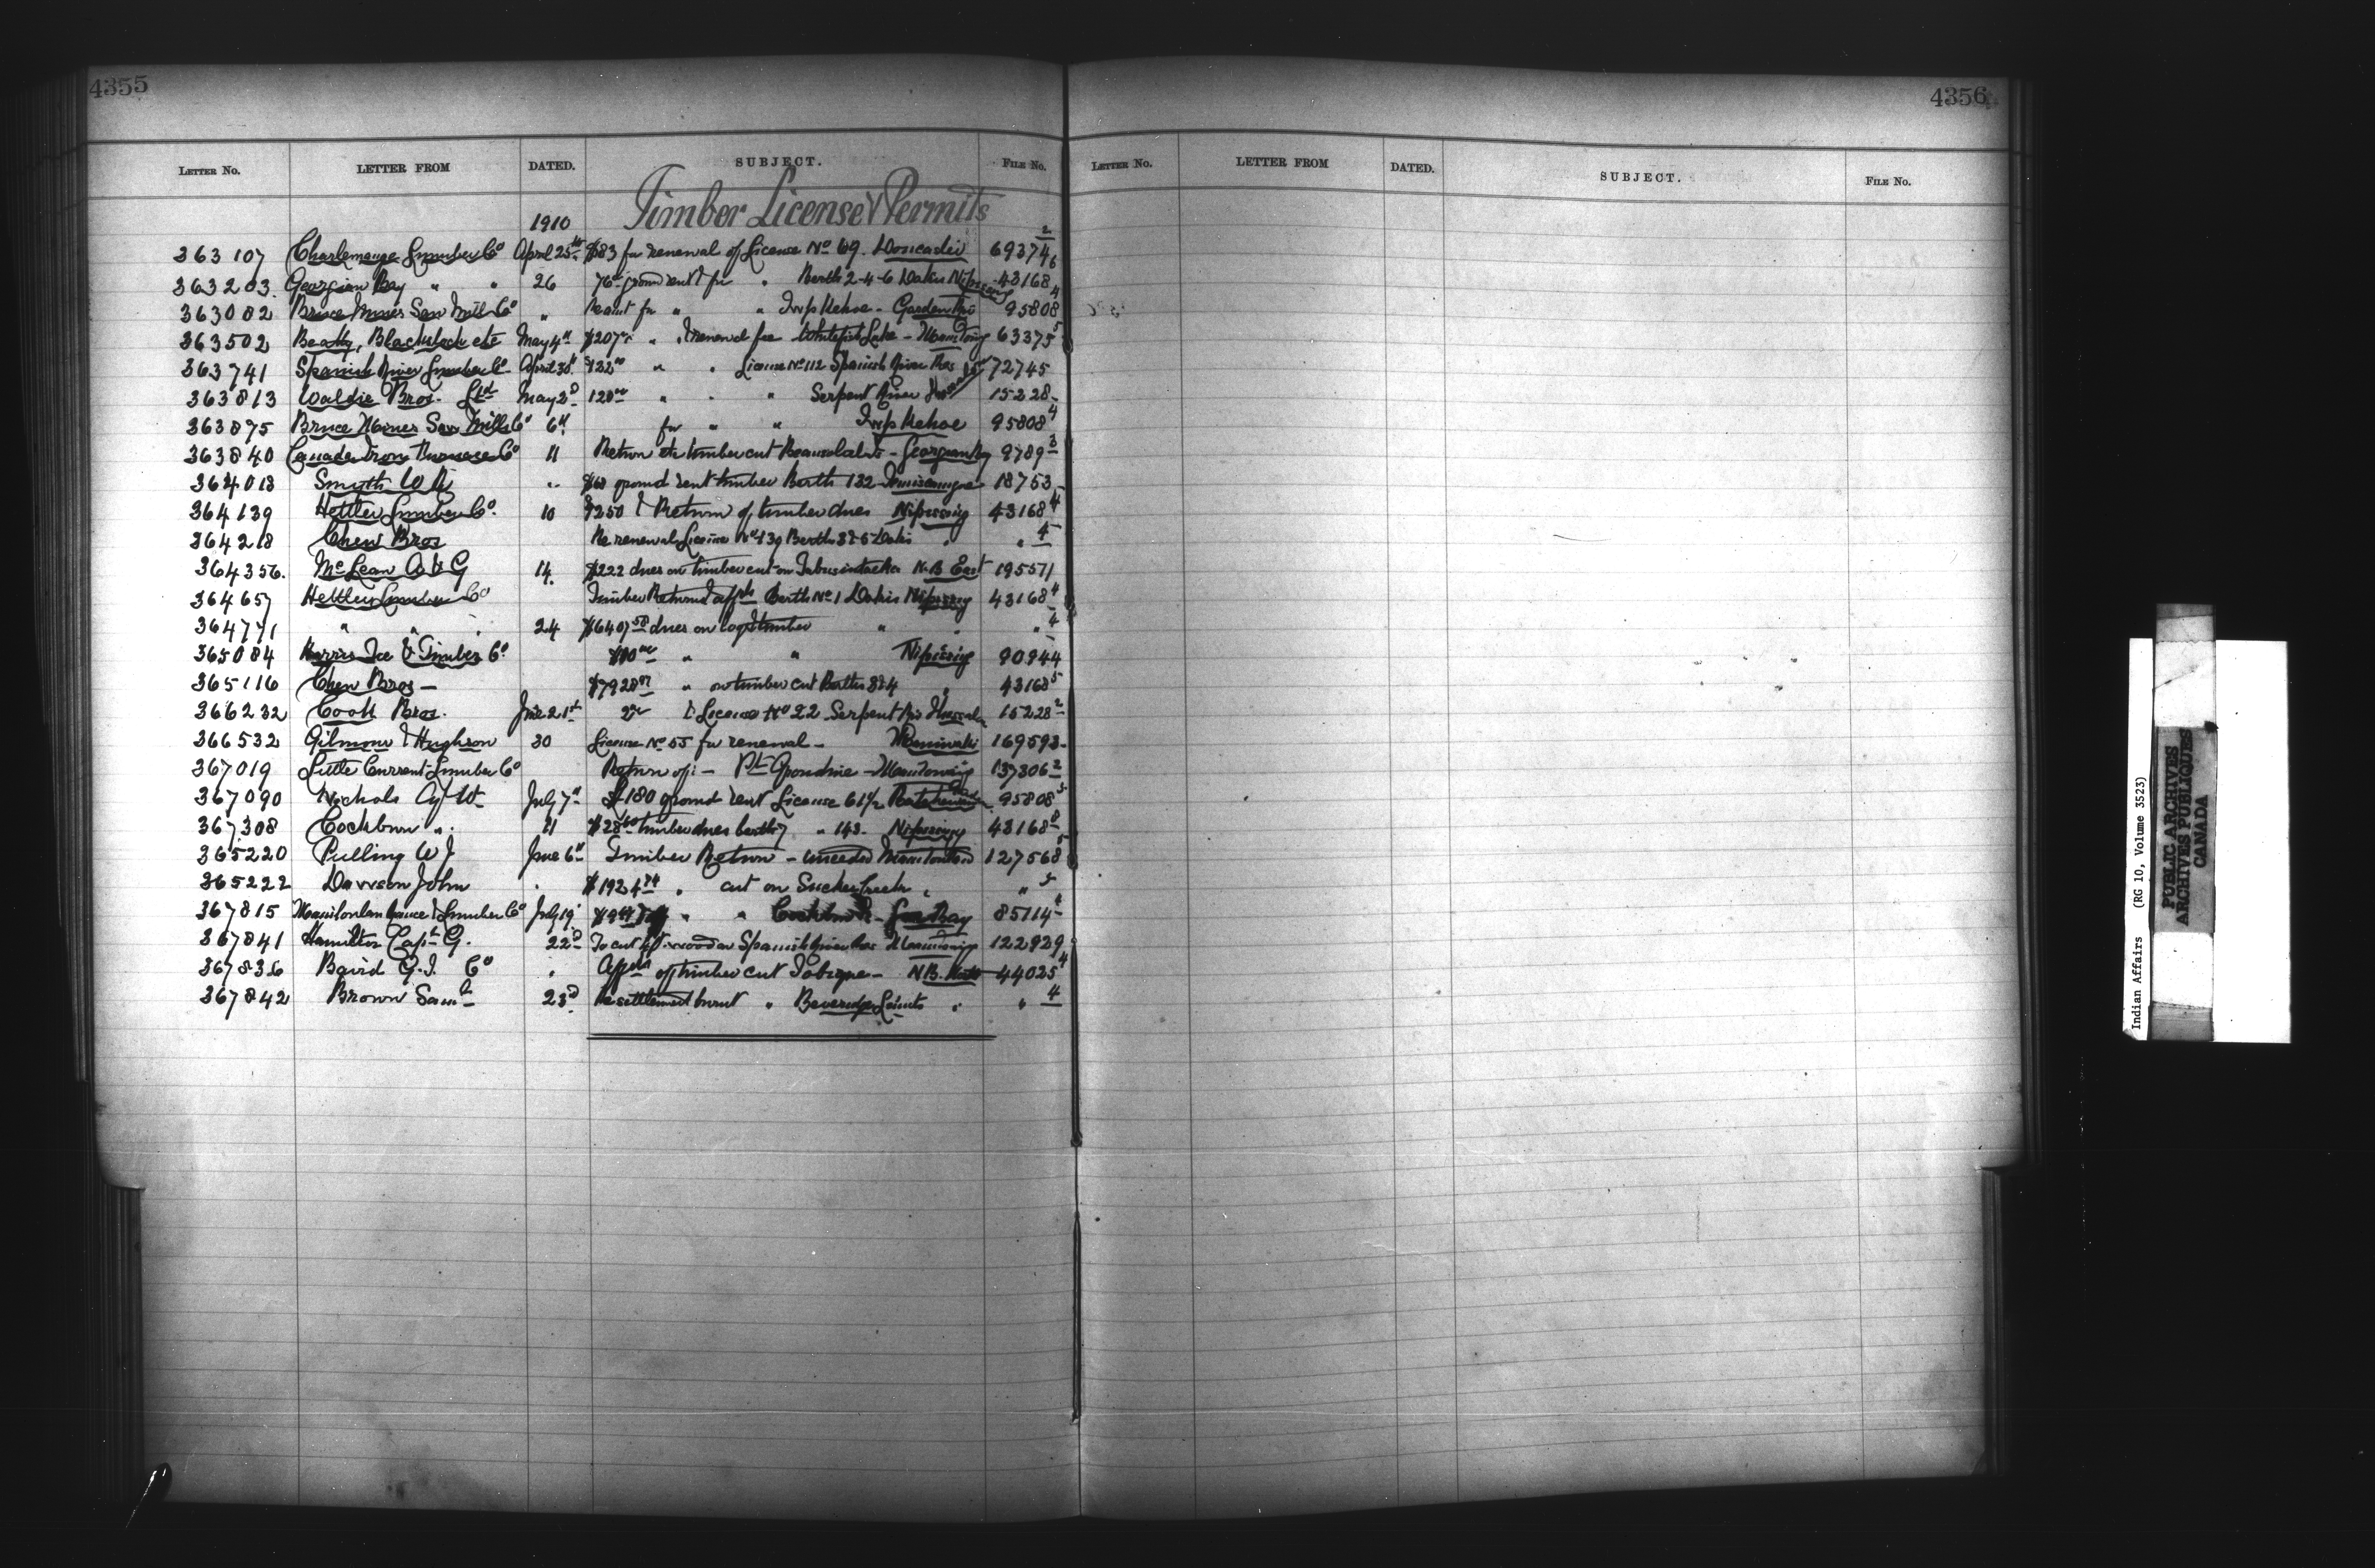 4355
LETTER NO. LETTER FROM DATED. SUBJECT. FILE NO.
Timber License & Permits
1910
363107 Charlemagne Lumber Co April 25th $83 for renewal of License No 69. Doncaster 69374 2
363203 Georgian Bay " " 26 ground rent & for " Berth 2-4-6 Dokis Nipissing 43168 6
363082 Bruce Mines Saw Mill Co " for " " Twp Kehoe - Garden Riv 95808 4
363502 Beatty, Blackstock etc May 4th $207 " & renewal fee Whitefish Lake - Manitowng 63375 5
363741 Spanish River Lumber Co April 30th $122 00 " " License No 112 Spanish River Res 72745
363813 Waldie Bros. Ltd May 2d 120 00 " " " Serpent River 15228
363875 Bruce Mines Saw Mills Co 6th for " " Twp Kehoe 95808 4
363840 Canada Iron Furnace Co 11 Return etc timber cut Beausoleil Is - Georgian Bay 9789 3
364013 Smyth W R " $68 ground rent timber Berth 132 Temiscamgue 18753
364139 Hettler Lumber Co. 10 $250 & Return of timber dues Nipissing 43168 4
364218 Chew Bros Re renewal License No 139 Berths 3 & 5 Dokis " " 4
364356. McLean A & G 14. $222 dues on timber cut on Tabusintac N.B. East 19557/1
364657 Hettler Lumber Co Timber Returns & affts Berth No 1 Dokis Nipissing 43168 4
364771 " " " 24 $6407 58 dues on logs & timber " " " 4
365084 Harris Tie & Timber Co. " " Nipissing 90944
365116 Chew Bros - $7928 " on timber cut Berths 3 & 4 " 43168 5
366232 Cook Bros. June 21st & License No 22 Serpent Riv Thessalon 15228 2
366532 Gilmour & Hughson 30 License No 55 for renewal - Maniwaki 169593-
367019 Little Current Lumber Co Return of: - Pt Grondine - Manitowng 137306 2
367090 Nichols Cy W July 7th $180 ground rent License 61½ Batchewana 95808 5
367308 Cockburn " 11 $28 timber dues berth 7 " 143. Nipissing 43168 8
365220 Pulling W J June 6th Timber Return - unceded Manitoulin 127568 5
365222 Dawson John " $1924 74 " cut on Sucker Creek " " 5
367815 Manitoulin & Lumber Co July 19 " " Cockburn Is - Gore Bay 85114 4
367841 Hamilton Capt G. 22d To cut wood on Spanish River Res Manitowng 122929
367836 Baird G. T. Co " Affts of timber cut Tobique - N.B. North 44025 4
367842 Brown Saml 23d Re settlement burnt " Beveridge Limits " " 4
4356
LETTER NO. LETTER FROM DATED. SUBJECT. FILE NO.
Indian Affairs (RG 10, Volume 3523)
PUBLIC ARCHIVES
ARCHIVES PUBLIQUES
CANADA